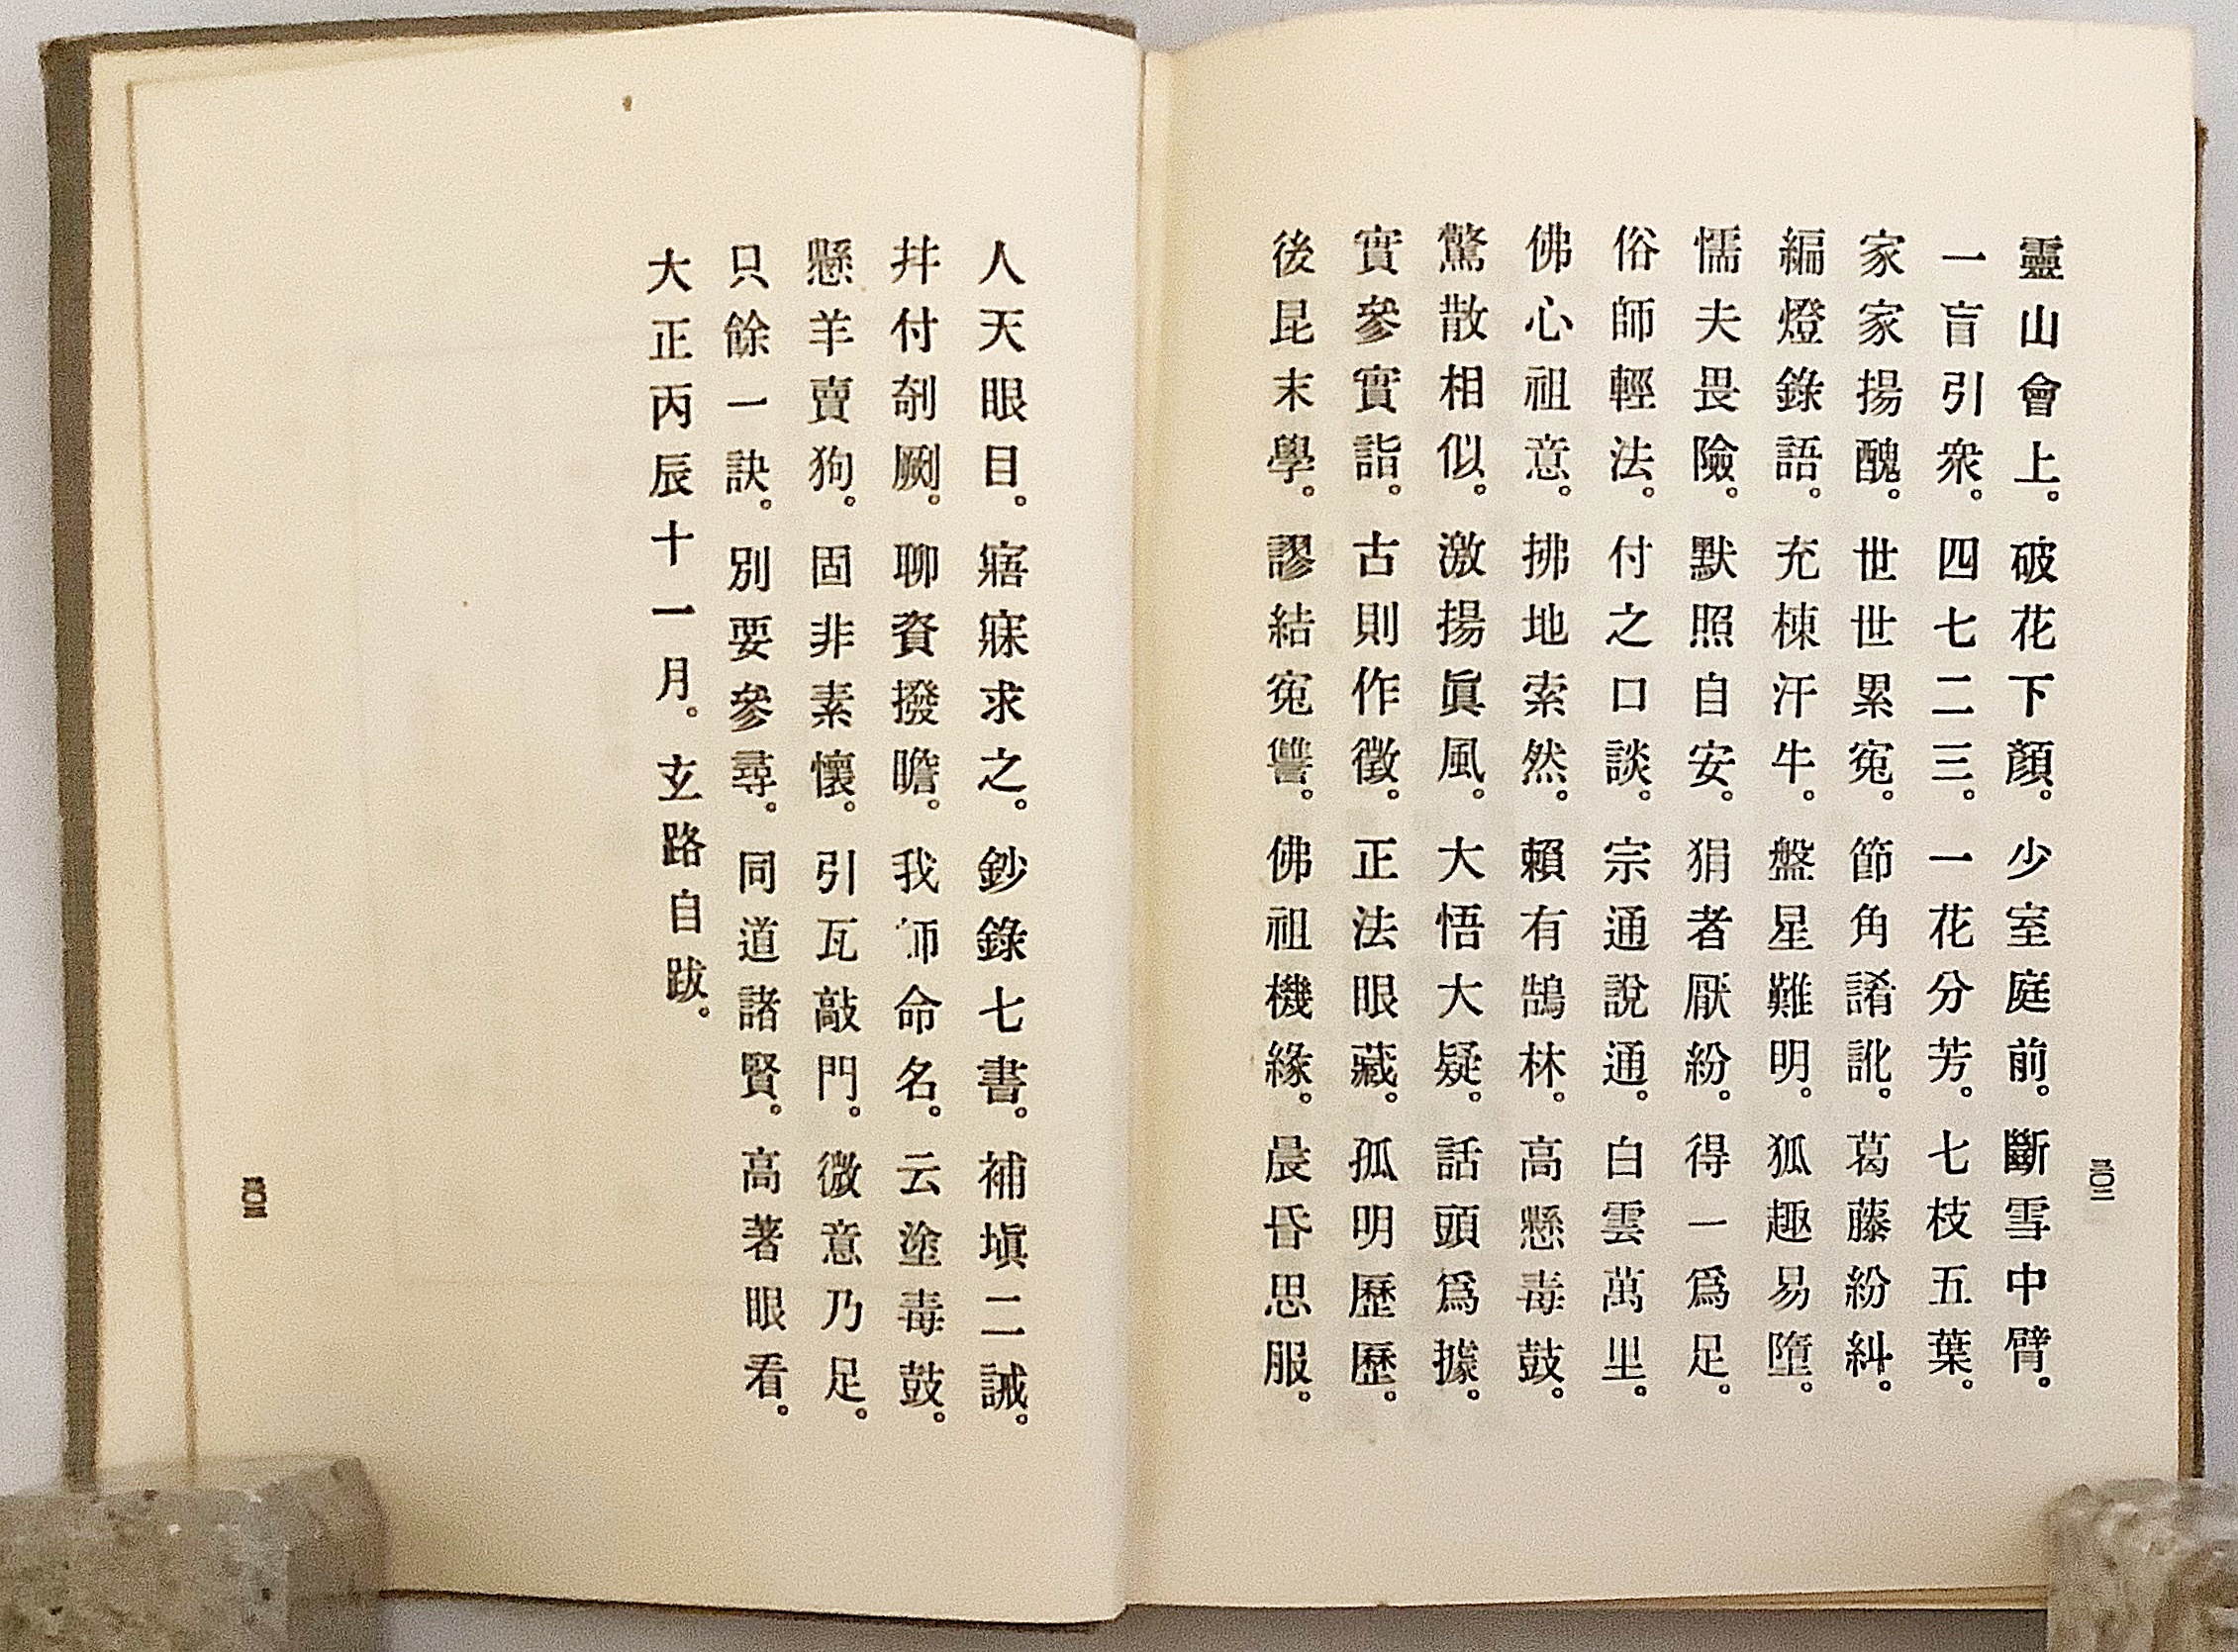 靈山會上。破花下顏。少室庭前。斷雪中臂。
一盲引衆。四七二三。一花分芳。七枝五葉。
家家揚醜。世世累寃。節角誵訛。葛藤紛糾。
編燈錄語。充棟汗牛。盤星難明。狐趣易墮。
懦夫畏險。默照自安。狷者厭紛。得一爲足。
俗師輕法。付之口談。宗通說通。白雲萬里。
佛心祖意。拂地索然。賴有鵠林。高懸毒鼓。
驚散相似。激揚眞風。大悟大疑。話頭爲據。
實參實詣。古則作徵。正法眼藏。孤明歷歷。
後昆末學。謬結寃讐。佛祖機緣。晨昏思服。
三〇二
人天眼目。寤寐求之。鈔錄七書。補塡二誡。
幷付剞劂。聊資撥瞻。我師命名。云塗毒鼓。
懸羊賣狗。固非素懷。引瓦敲門。微意乃足。
只餘一訣。別要參尋。同道諸賢。高著眼看。
大正丙辰十一月。玄路自跋。
三〇三